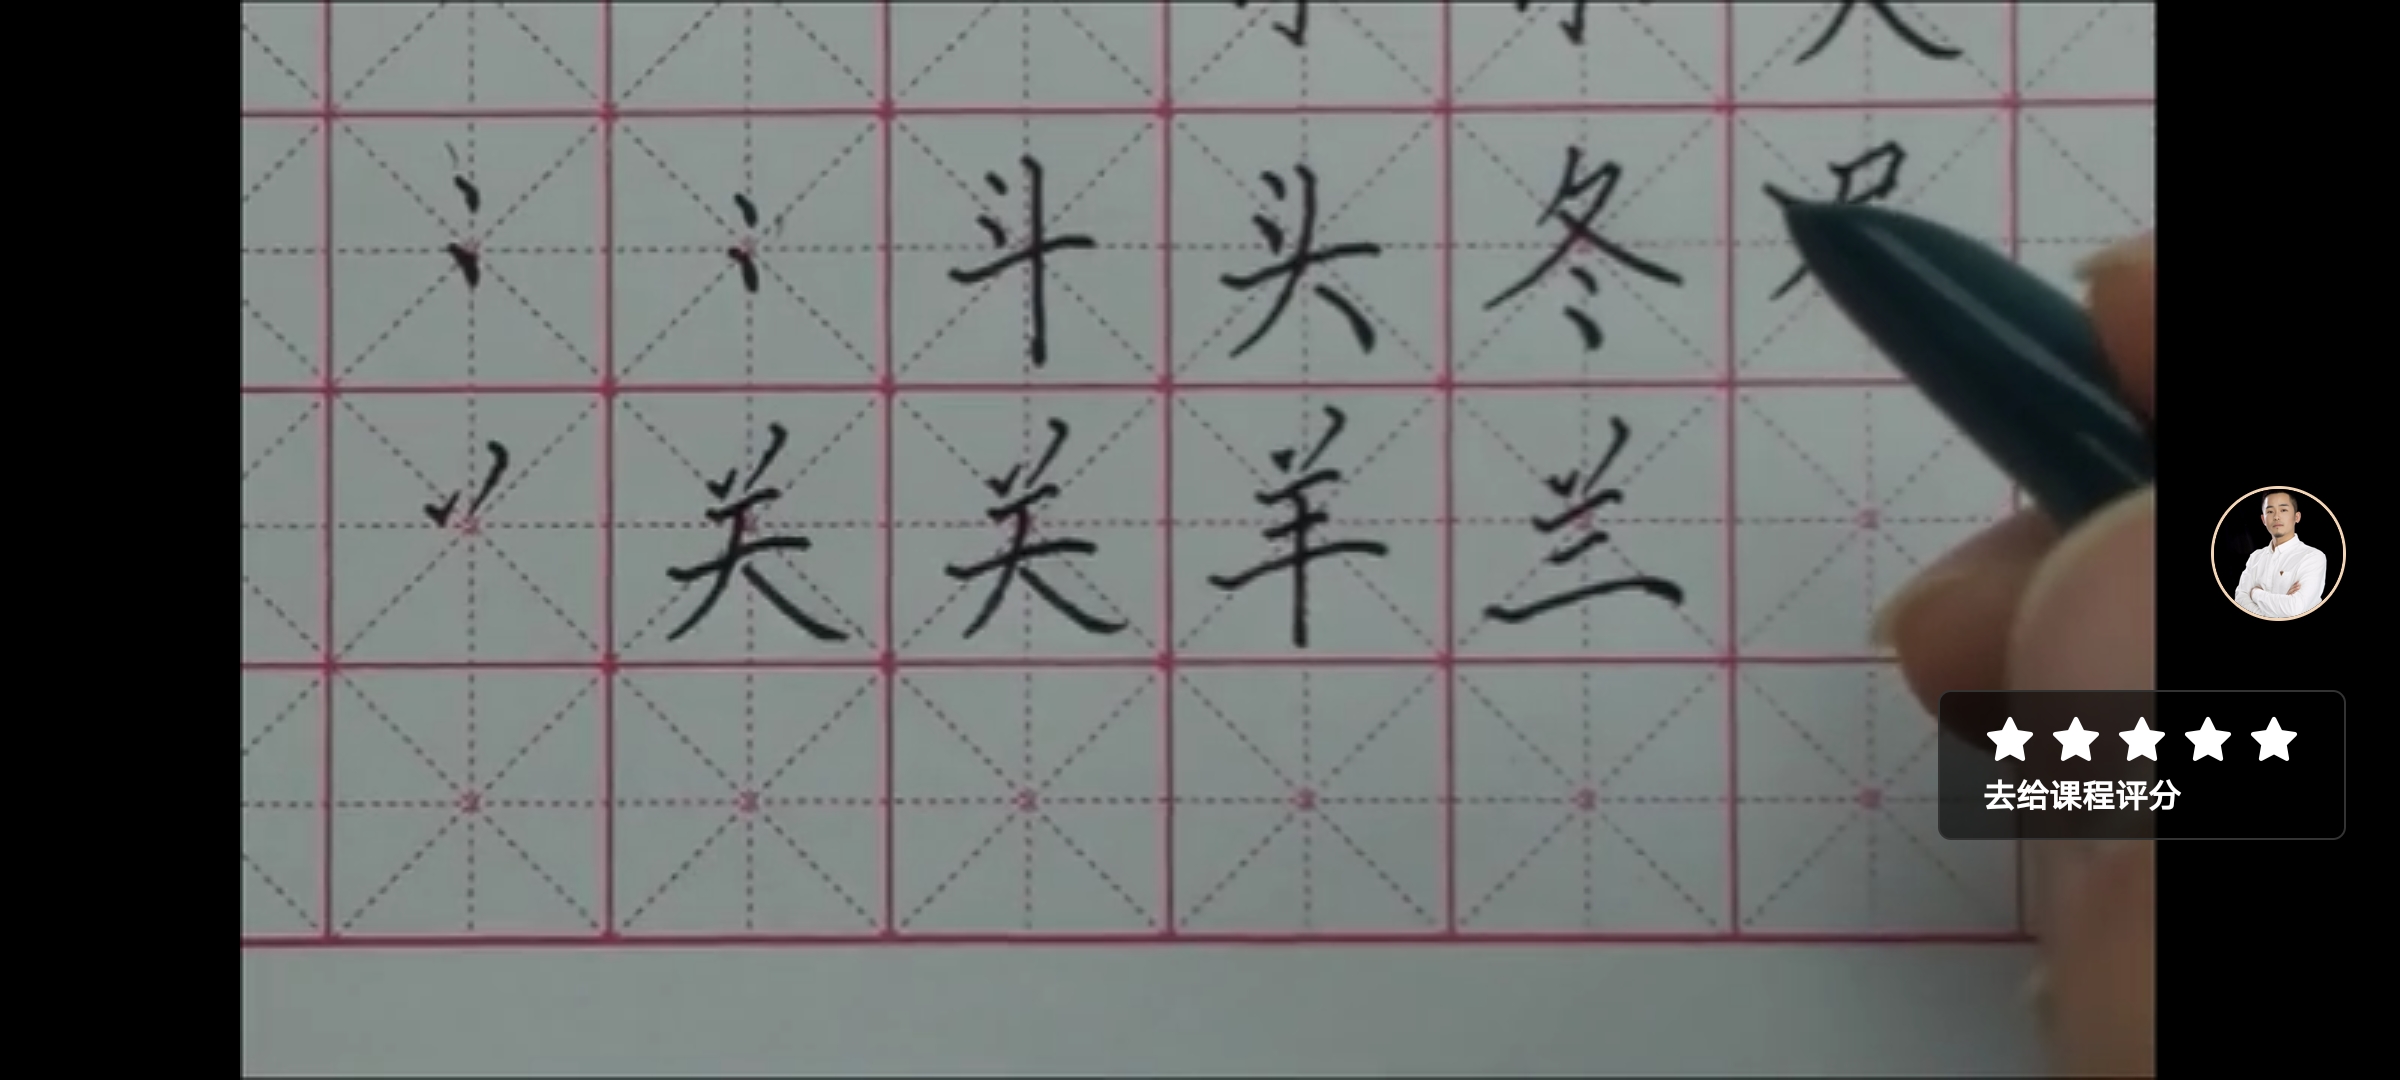 斗 头 冬
关 关 羊 兰
去给课程评分